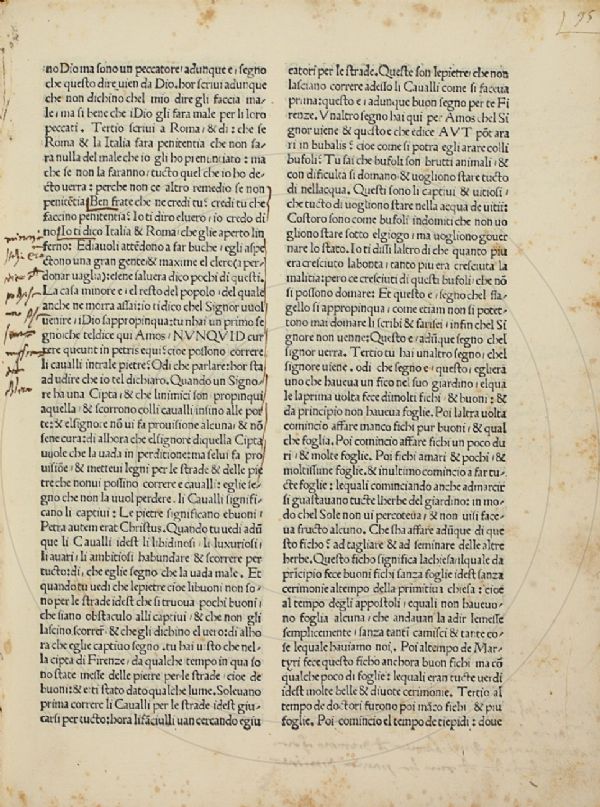 95
no Dio ma sono un peccatore: adunque e, segno
che questo dire uien da Dio. hor scriui adunque
che non dichino chel mio dire gli faccia ma-
le, ma si bene che iDio gli fara male per li loro
peccati. Tertio scriui a Roma, & di: che se
Roma & la Italia fara penitentia che non sa-
ra nulla del male che io gli ho prenunciato: ma
che se non la faranno, tucto quel che io ho de
cto uerra: perche non ce altro remedio se non
penitẽtia, Ben frate che ne credi tu? credi tu che
faccino penitentia? Io ti diro eluero, io credo di
no, Io ti dico Italia & Roma, che gli e aperto lin
ferno: Ediauoli attẽdono a far buche, egli aspe-
ctono una gran gente, & maxime el clero (a per-
donar uaglia): e lene saluera dico pochi di questi.
La casa minore e, il resto del popolo, del quale
anche ne morra assai: io ti dico chel Signor uuol
uenire, iDio sappropinqua: tu nhai un primo se
gno, che tel dice qui Amos, NVNQVID cur
rere queunt in petris equi? cioe possono correre
li caualli intrale pietre? Odi che parlare: hor sta
ad udire che io tel dichiaro. Quando un Signo-
re ha una Cipta, & che linimici son propinqui
aquella, & scorrono colli caualli insino alle por
te: & elsignore nõ ui fa prouisione alcuna, & nõ
sene cura: di alhora che elsignore diquella Cipta
uuole che la uada in perditione: ma selui fa pro
uisiõe, & metteui legni per le strade & delle pie
tre che nonui possino correre e caualli: eglie se-
gno che non la uuol perdere. Li Caualli signifi-
cano li captiui: Le pietre significano ebuoni,
Petra autem erat Christus. Quando tu uedi adũ
que li Caualli idest li libidinosi, li luxuriosi,
li auari, li ambitiosi habundare & scorrere per
tucto: di, che eglie segno che la uada male. Et
quando tu uedi che lepietre cioe libuoni non so-
no per le strade idest che si truoua pochi buoni,
che siano obstaculo alli captiui, & che non gli
lascino scorrere & che gli dichino el uero: di alho
ra che eglie captiuo segno. tu hai uisto che nel-
la cipta di Firenze, da qualche tempo in qua so
no state messe delle pierre per le strade, cioe de
buoni: & etti stato dato qualche lume. Soleuano
prima correre li Caualli per le strade idest giu-
carsi per tucto: hora li faciulli uan cercando egiu
catori per le strade. Queste son lepietre, che non
lasciano correre adesso li Caualli come si faceua
prima: questo e, adunque buon segno per te Fi-
renze. Vnaltro segno hai qui per Amos chel Si-
gnor uiene & questo e che edice AVT põt ara-
ri in bubalis? cioe come si potra egli arare colli
bufoli? Tu sai che bufoli son brutti animali, &
con dificulta si domano & uogliono stare tucto
di nellacqua. Questi sono li captiui & uitiosi,
che tucto di uogliono stare nella acqua de uitii:
Costoro sono come bufoli indomiti che non uo
gliono stare sotto elgiogo, ma uogliono gouer-
nare lo stato. Io ti dissi laltro di che quanto piu
era cresciuto la bonta, tanto piu era cresciuta la
malitia: pero ce cresciuti di questi bufoli, che nõ
si possono domare: Et questo e, segno chel fla-
gello si appropinqua, come etiam non si potet-
tono mai domare li scribi & farisei, infin chel Si
gnore non uenne: Questo e, adũque segno chel
signor uerra. Tertio tu hai unaltro segno, chel
signore uiene. odi che segno e, questo, egliera
uno che haueua un fico nel suo giardino, elqua
le la prima uolta fece dimolti fichi, & buoni: &
da principio non haueua foglie. Poi laltra uolta
comincio affare manco fichi pur buoni, & qual
che foglia. Poi comincio affare fichi un poco du
ri, & molte foglie. Poi fichi amari & pochi, &
moltissime foglie. & inultimo comincio a far tu-
cte foglie: lequali cominciando anche admarcire
si guastauano tucte lherbe del giardino: in mo-
do chel Sole non ui percoteua, & non uisi face-
ua fructo alcuno. Che sha affare adũque di que
sto ficho? ad tagliare & ad seminare delle altre
herbe. Questo ficho significa lachiesa, lquale da
prĩcipio fece buoni fichi sanza foglie idest sanza
cerimonie altempo della primitiua chiesa: cioe
al tempo degli appostoli, equali non haueuo-
no foglia alcuna, che andauan la adir lemesse
semplicemente, sanza tanti camisci & tante co-
se lequale hauiamo noi. Poi altempo de Mar-
tyri fece questo ficho anchora buon fichi ma cõ
qualche poco di foglie: lequali eran tucte uerdi
idest molte belle & diuote cerimonie. Tertio al
tempo de doctori furono poi mãco fichi & piu
foglie. Poi comincio el tempo de tiepidi: doue